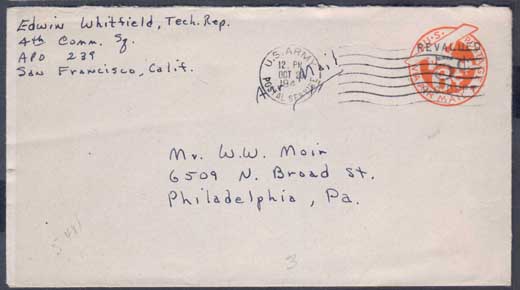 Edwin Whitfield, Tech. Rep.
4th Comm. Sq.
APO 239
San Francisco, Calif.
U.S. ARMY
12. PM
OCT
POSTAL SERVICE
Air Mail
REVALUED
U.S. POSTAGE
AIR MAIL
Mr. W.W. Moir
6509 N. Broad St.
Philadelphia, Pa.
3